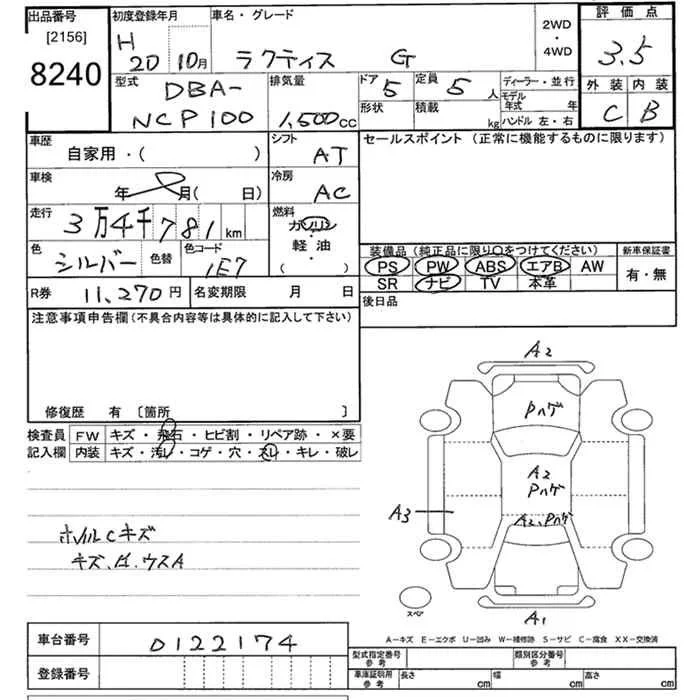 出品番号
[2156]
8240
初度登録年月
H 20 10月
車名・グレード
ラクティス G
2WD
・
4WD
評価点
3.5
外装 内装
C B
型式
DBA-
NCP100
排気量
1,500cc
ドア 5
定員 5人
形状
積載 kg
ディーラー・並行
モデル
年式 年
ハンドル 左・右
車歴
自家用・( )
シフト
AT
車検
年 月( 日)
冷房
AC
走行
3万4千781km
燃料
ガソリン
軽油
( )
色
シルバー
色替
色コード
1E7
セールスポイント (正常に機能するものに限ります)
装備品 (純正品に限り○をつけてください)
PS PW ABS エアB AW
SR ナビ TV 本革
新車保証書
有・無
R券 11,270円
名変期限 月 日
後日品
注意事項申告欄 (不具合内容等は具体的に記入して下さい)
修復歴 有 [箇所 ]
検査員
記入欄
FW キズ・飛石・ヒビ割・リペア跡・×要
内装 キズ・汚レ・コゲ・穴・スレ・キレ・破レ
ホイルCキズ
キズ、凹、ウスA
A2
Pハゲ
A2
Pハゲ
A2、Pハゲ
A3
A1
スペア
A-キズ E-エクボ U-凹み W-補修跡 S-サビ C-腐食 XX-交換済
車台番号 0122174
登録番号
型式指定番号
参考
類別区分番号
参考
車庫証明用
参考
長さ cm 幅 cm 高さ cm